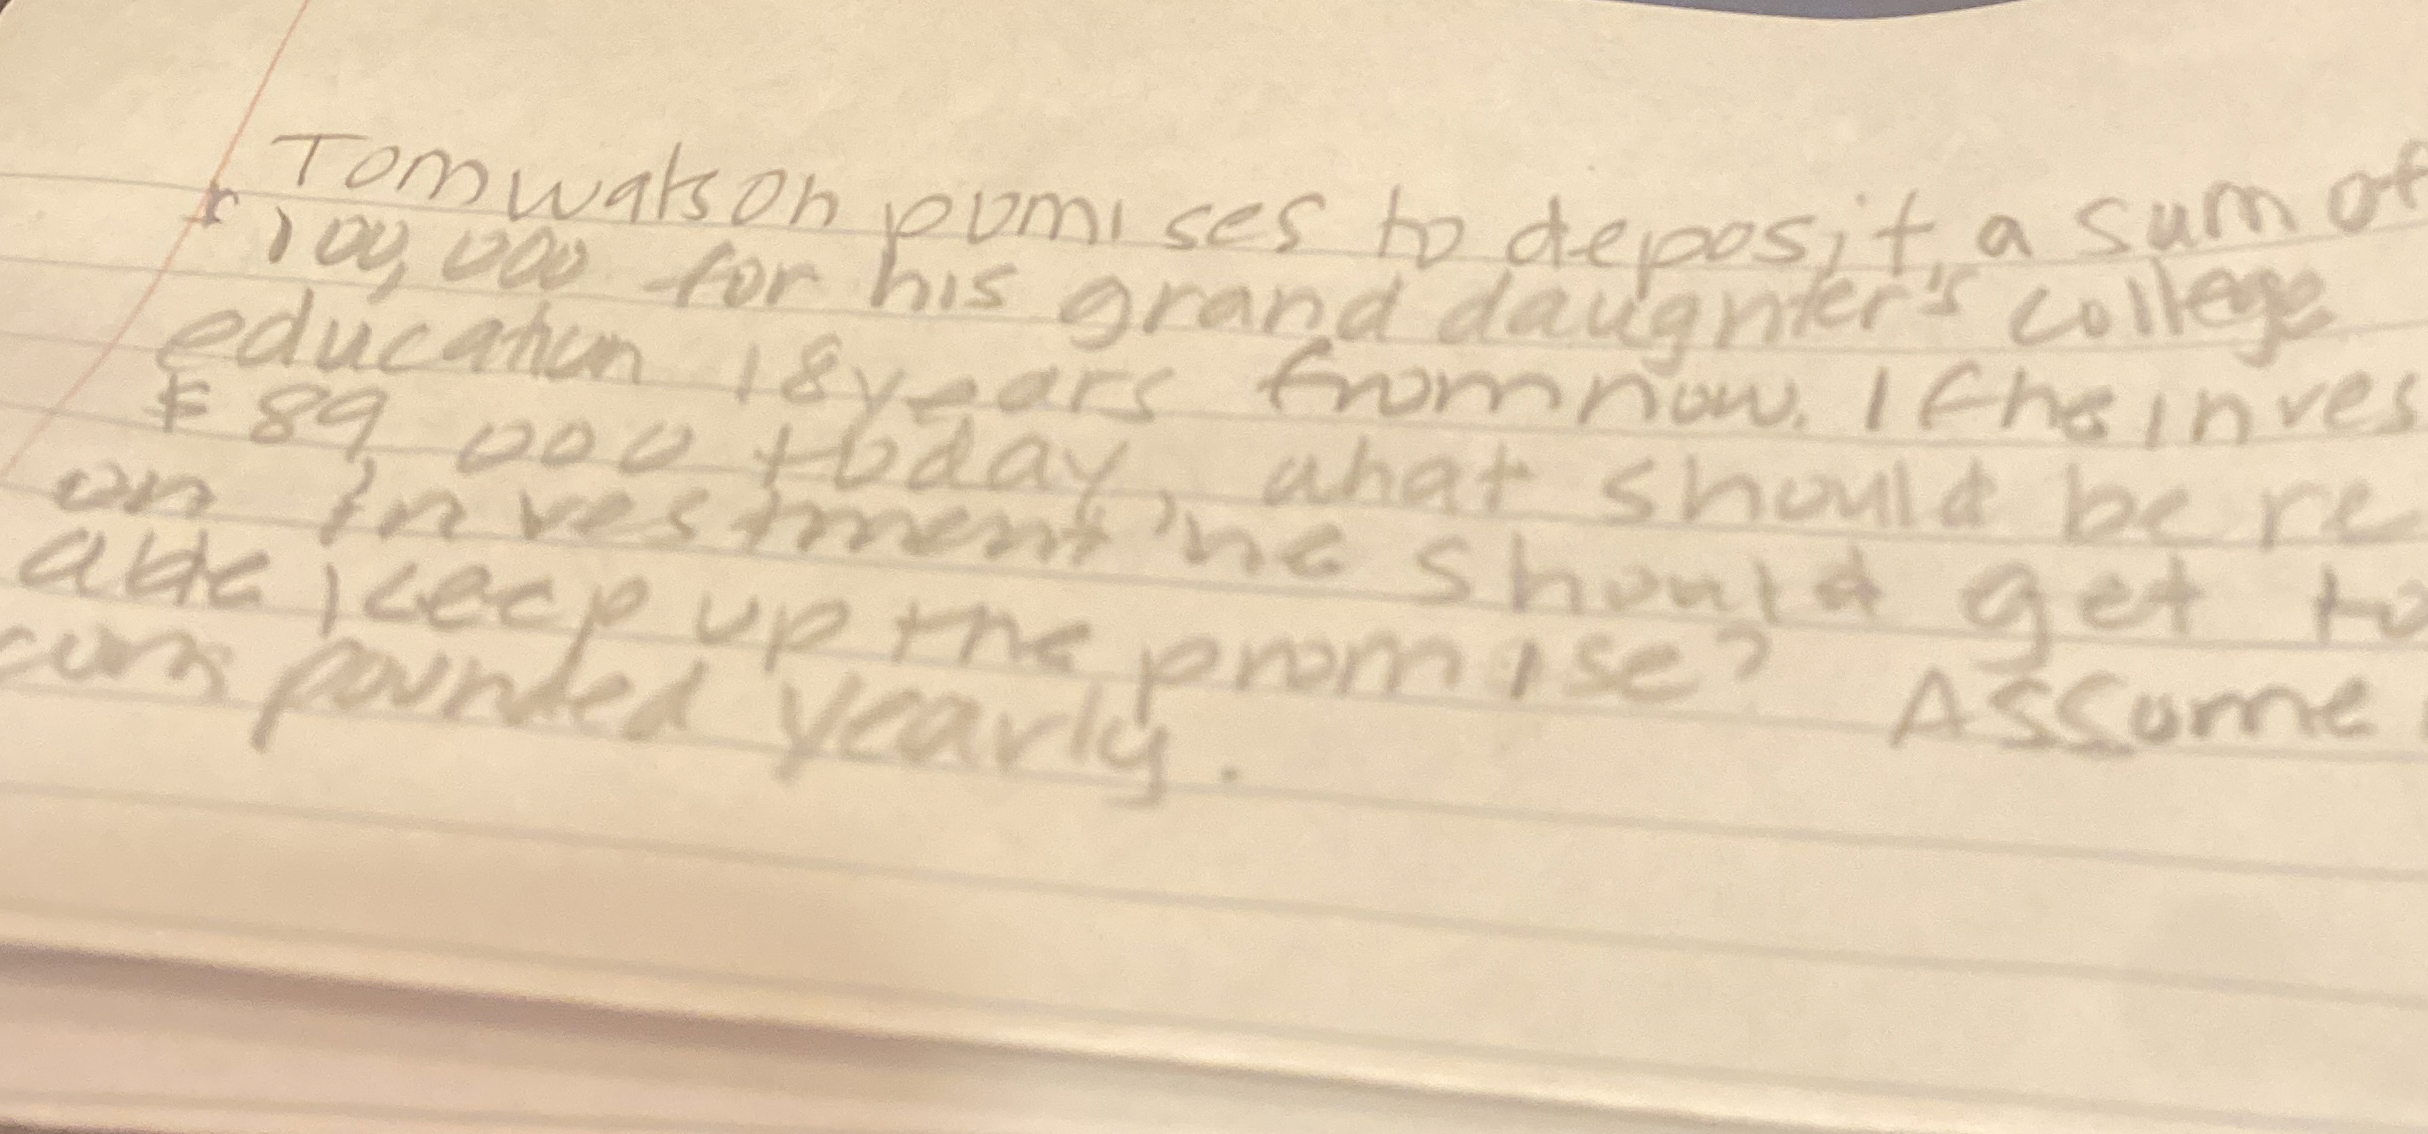 Tom watson pomises to deposit a sum of
$100,000 for his grand daughter's college
education 18 years from now. If he inves
$89,000 today, what should be re
on investment he should get to
able keep up the promise? Assume
compounded yearly.